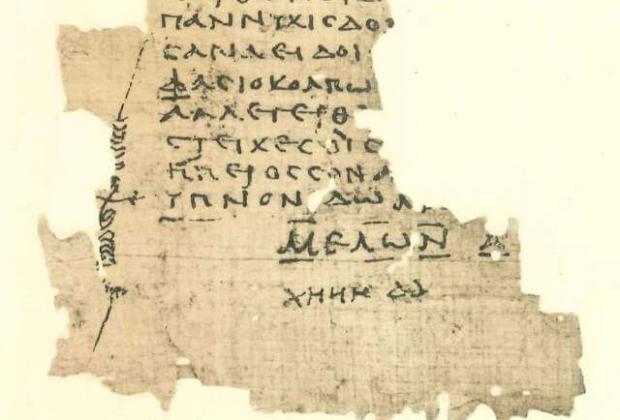 ΠΑΝΝΥΧΙϹΔΟ
ϹΑΝΑΕΙΔΟΙ
ΦΑϹΙΟΚΟΛΠΩ
ΑΛΛΕΓΕΡΘ
ϹΤΕΙΧΕϹΟΙϹ
ΗΠΕΡΟϹϹΟΝΑ
ΥΠΝΟΝ ΔΩ
ΜΕΛΩΝ Α
ΧΗΗΗ ΔΔ